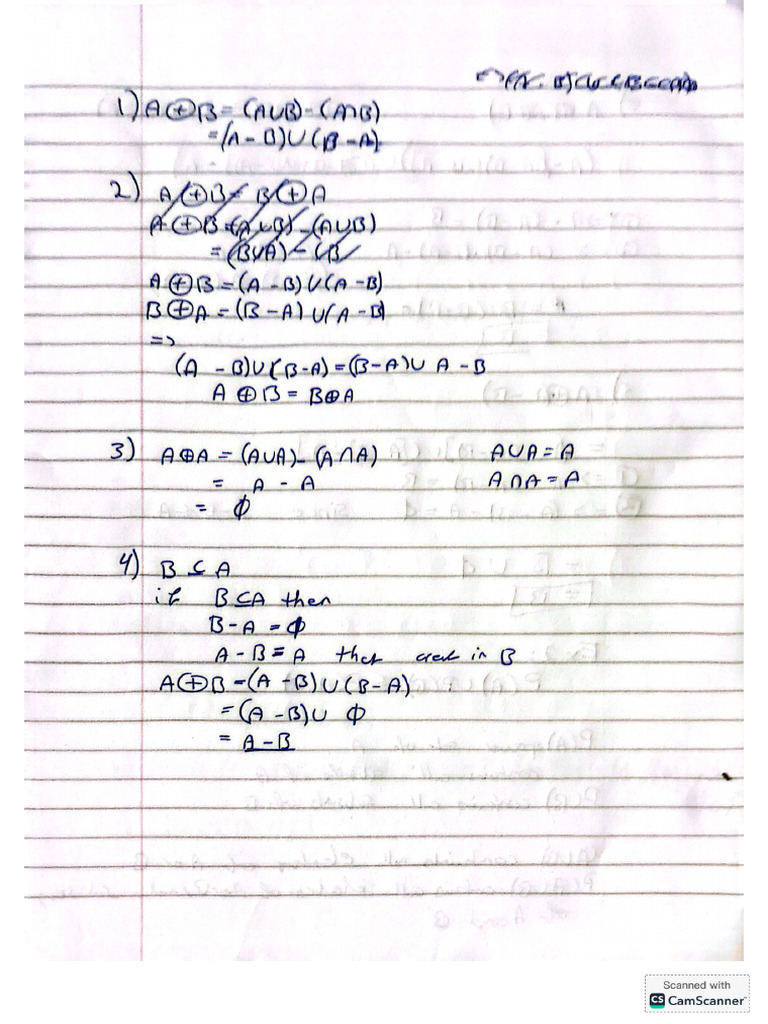 1) A⊕B = (A∪B)-(A∩B)
= (A-B)∪(B-A)
2) A⊕B = B⊕A
A⊕B = (A∪B) - (A∪B)
= (B∪A) - (B
A⊕B = (A-B)∪(A-B)
B⊕A = (B-A)∪(A-B)
=>
(A-B)∪(B-A) = (B-A)∪ A-B
A⊕B = B⊕A
3) A⊕A = (A∪A)-(A∩A) A∪A = A
= A - A A∩A = A
= ϕ
4) B⊆A
if B⊆A then
B-A = ϕ
A-B = A that in B
A⊕B = (A-B)∪(B-A)
= (A-B)∪ ϕ
= A-B
Scanned with
CS CamScanner